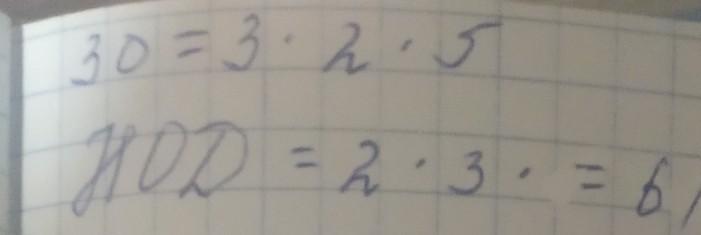 30 = 3 · 2 · 5
НОД = 2 · 3 · = 6